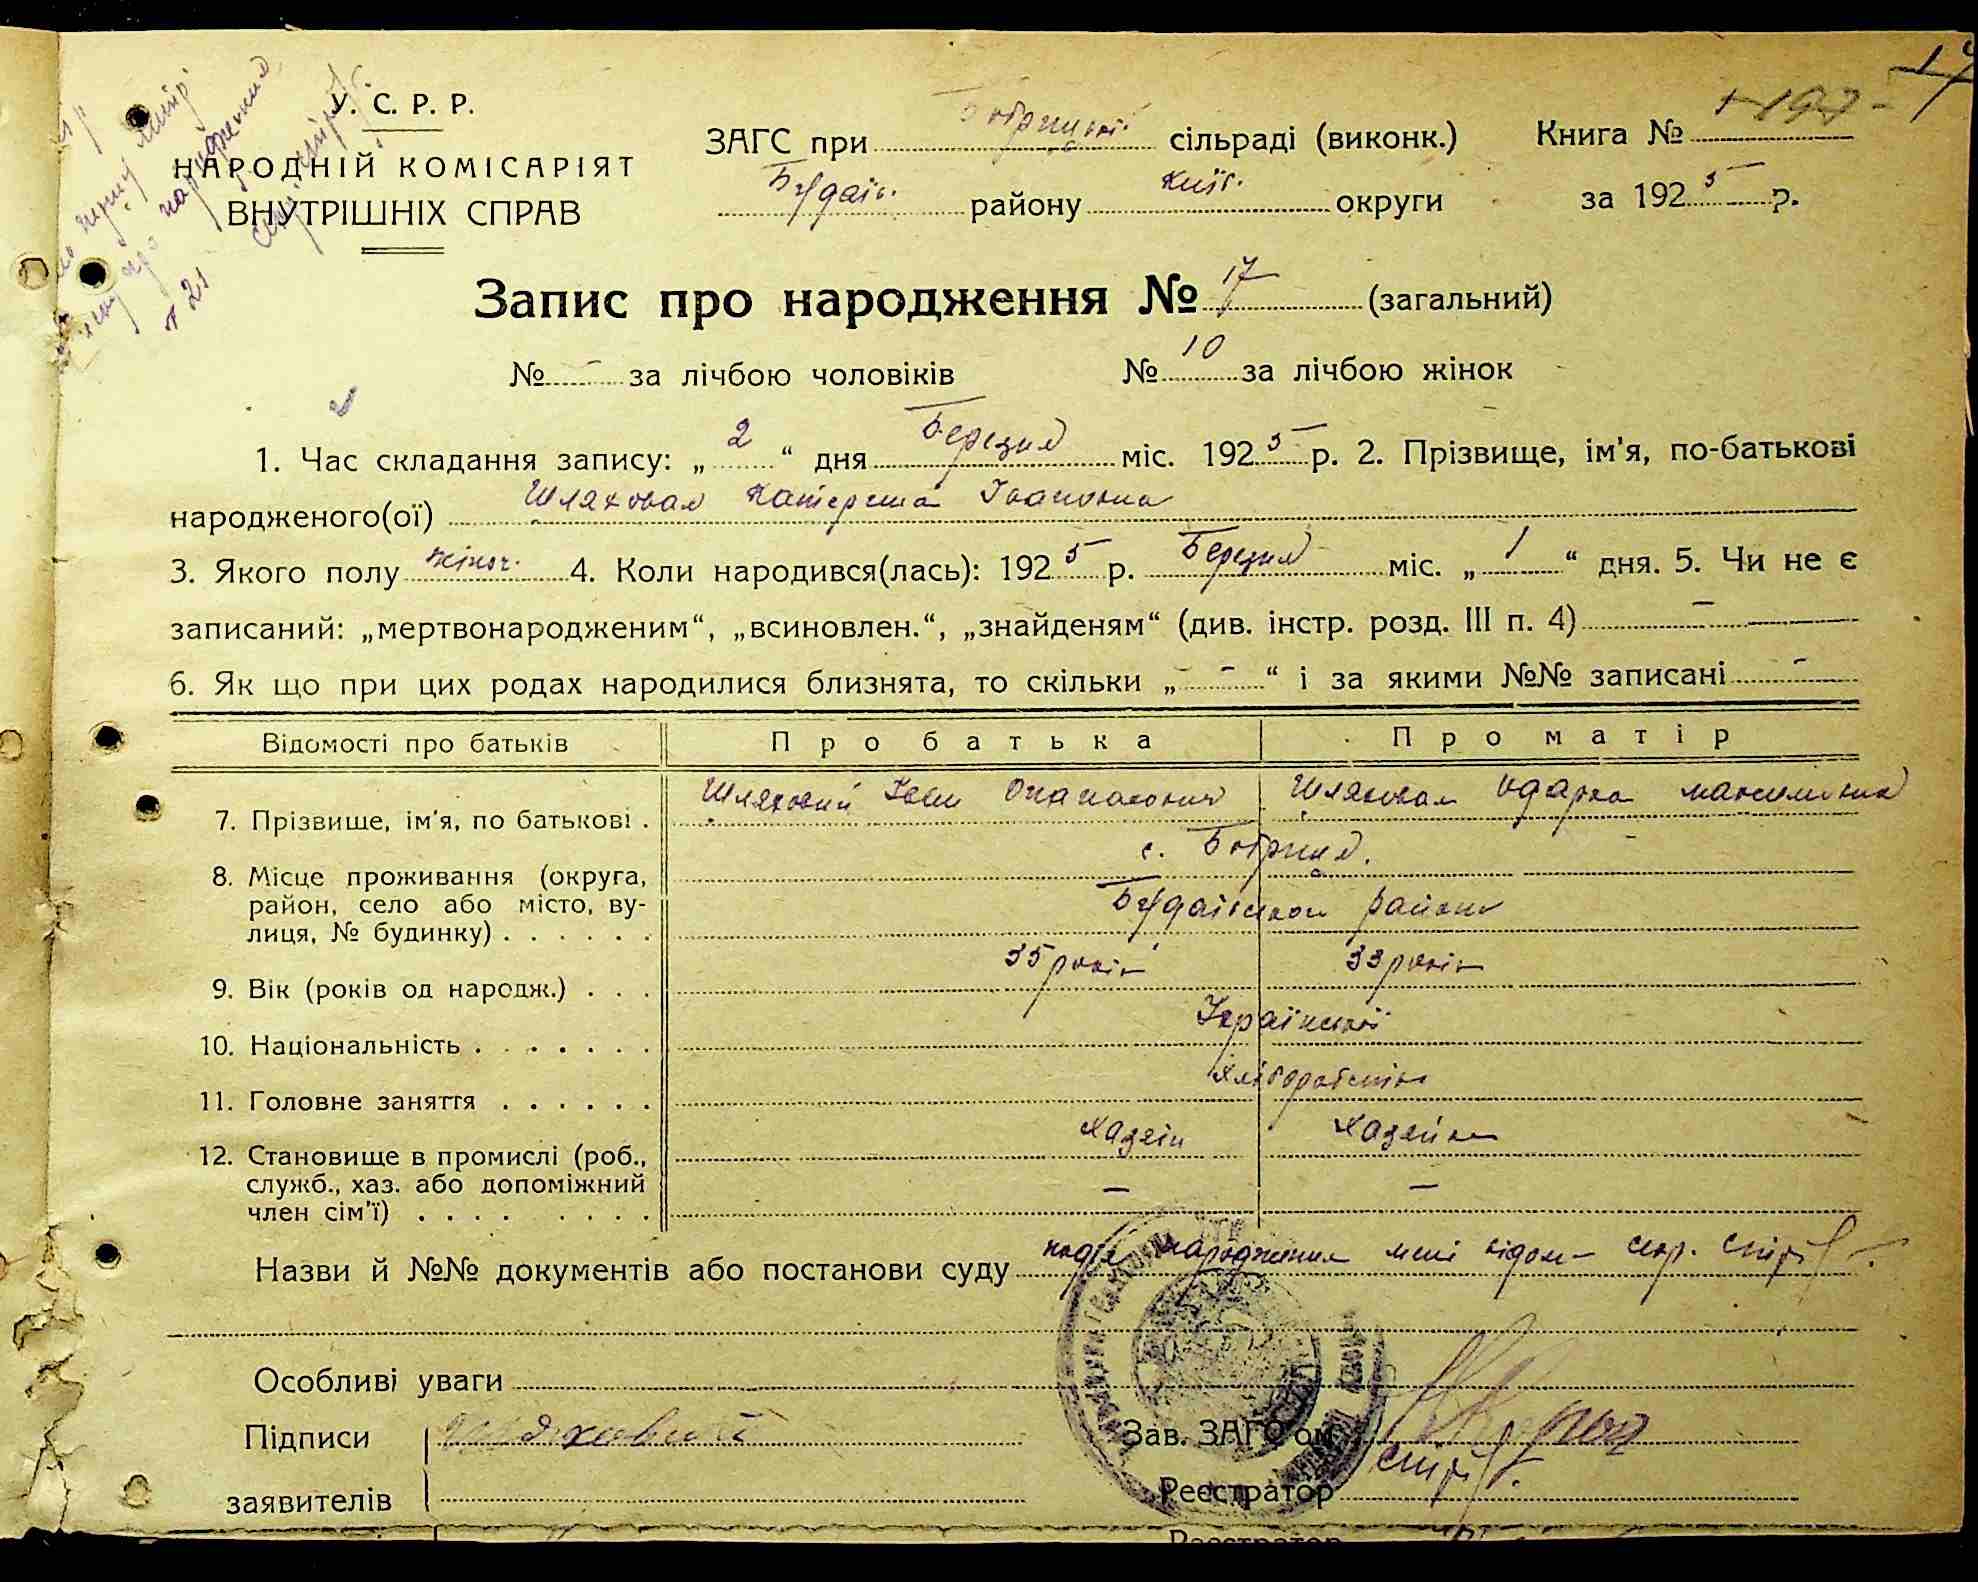 У. С. Р. Р.
НАРОДНІЙ КОМІСАРІЯТ
ВНУТРІШНІХ СПРАВ
ЗАГС при Бобрицькій сільраді (виконк.) Книга №
Будаїв. району Київ. округи за 1925 р.
17
Запис про народження № 17 (загальний)
№ - за лічбою чоловіків № 10 за лічбою жінок
1. Час складання запису: „2“ дня Березня міс. 1925 р. 2. Прізвище, ім'я, по-батькові
народженого(ої) Шляховая Катерина Івановна
3. Якого полу жіноч. 4. Коли народився(лась): 1925 р. Березня міс. „1“ дня. 5. Чи не є
записаний: „мертвонародженим“, „всиновлен.“, „знайденям“ (див. інстр. розд. III п. 4) -
6. Як що при цих родах народилися близнята, то скільки „-“ і за якими №№ записані -
Відомості про батьків Про батька Про матір
7. Прізвище, ім'я, по батькові . Шляховий Іван Опанасович Шляховая Одарка Максимівна
8. Місце проживання (округа,
район, село або місто, ву-
лиця, № будинку) . . . . . .
с. Бобриця.
Будаївськои района
9. Вік (років од народж.) . . . 35 років 33 років
10. Національність . . . . . . . Української
11. Головне заняття . . . . . . Хліборобство
12. Становище в промислі (роб.,
служб., хаз. або допоміжний
член сім'ї) . . . . . . . .
Хазяїн Хазяйка
- -
Назви й №№ документів або постанови суду подія народження мені відома секр.
Особливі уваги
Підписи Шляховий Зав. ЗАГС'ом
заявителів Реєстратор
Реєстратор